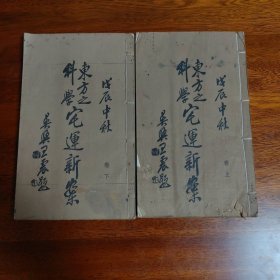 戊辰中秋
東方之
科學
宅運新案
吳興王震題
卷下
戊辰中秋
東方之
科學
宅運新案
吳興王震題
卷上